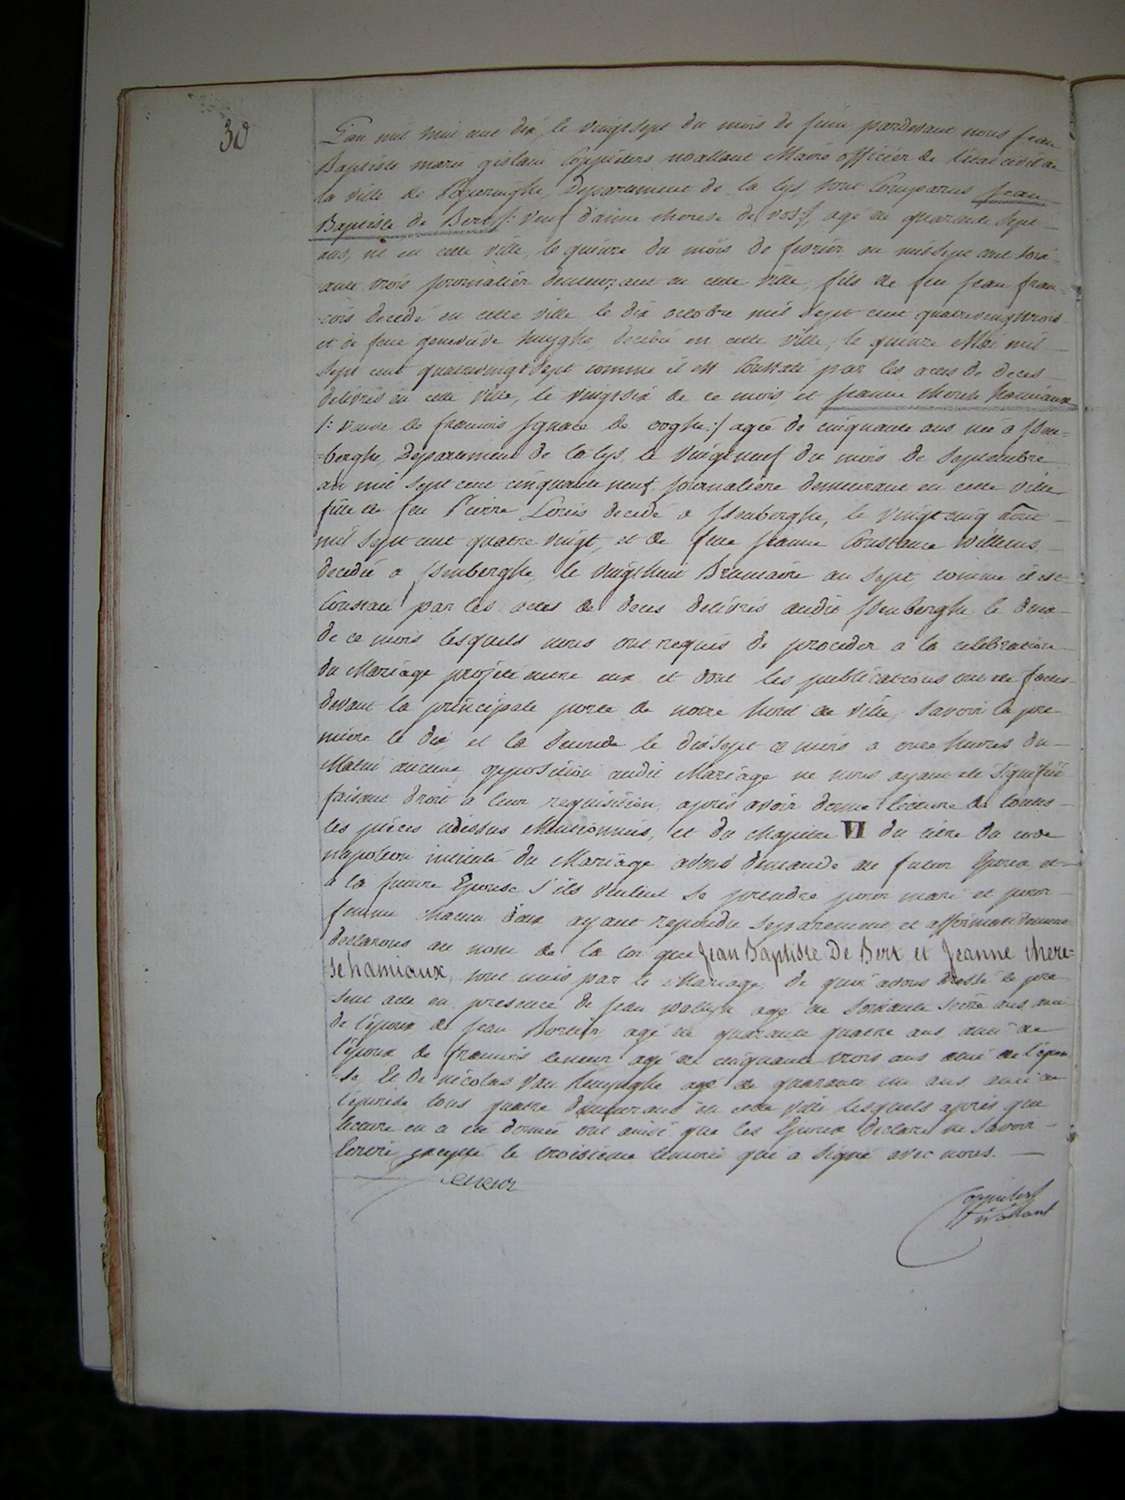 30
L'an mil huit cent dix, le vingt sept du mois de juin pardevant nous jean
Baptiste marie gislain Coppieters wallant Maire officier de l'état civil de
la ville de Poperinghe, Departement de la lys sont Comparus jean
Baptiste de Bert /: veuf d'anne therese de vos :/ agé de quarante sept
ans, né en cette ville, le quinze du mois de fevrier an mil sept cent soix-
ante trois journalier demeurant en cette ville, fils de feu jean fran-
-cois decedé en cette ville le dix octobre mil sept cent quatrevingt trois
et de feue genevieve huyghe, decedée en cette ville, le quinze Mai mil
sept cent quatrevingt sept comme il est Constaté par les actes de deces
delivrés en cette ville, le vingt six de ce mois et jeanne therese hamiaux
/: veuve de francois ignace de ooghe :/ agée de cinquante ans née a Isen-
-berghe, Departement de la lys, le vingt neuf du mois de septembre
an mil sept cent cinquante neuf journaliere demeurant en cette ville
fille de feu Pierre Louis decedé a Isenberghe, le vingt cinq aout
mil sept cent quatre vingt, et de feue jeanne Constance Willems
decedée a Isenberghe, le vingt huit Brumaire an sept, comme il est
Constaté par les actes de deces delivrés audit Isenberghe le
de ce mois lesquels nous ont requis de proceder a la celebration
du Mariage projeté entre eux et dont les publications ont été faites
devant la principale porte de notre hotel de ville, savoir la pre-
miere le dix et la seconde le dix sept ce mois a onze heures du
Matin aucune opposition audit Mariage ne nous ayant été signifiée
faisant droit a leur requisition, après avoir donné lecture de toutes
les pièces cidessus Mentionnées, et du chapitre VI du titre du code
napoleon intitulé du Mariage avons demandé au futur Epoux et
a la future Epouse s'ils veulent se prendre pour mari et pour
femme chacun d'eux ayant repondu separement et affirmativement
declarons au nom de la loi que Jean Baptiste De Bert et Jeanne there-
-se hamiaux, sont unis par le Mariage, de quoi avons dressé le pre-
sent acte en presence de jean agé de soixante ans ami
de l'époux de jean agé de quarante quatre ans ami de
l'époux de francois leneur agé de cinquante trois ans ami de l'épou
-se Et de nicolas Van huyghe agé de quarante un ans ami de
l'epouse tous quatre demeurant en cette ville lesquels après que
lecture en a été donnée ont ainsi que les Epoux declaré ne savoir
Ecrire excepté le troisieme temoin qui a signé avec nous.
Leneur
Coppieters
wallant